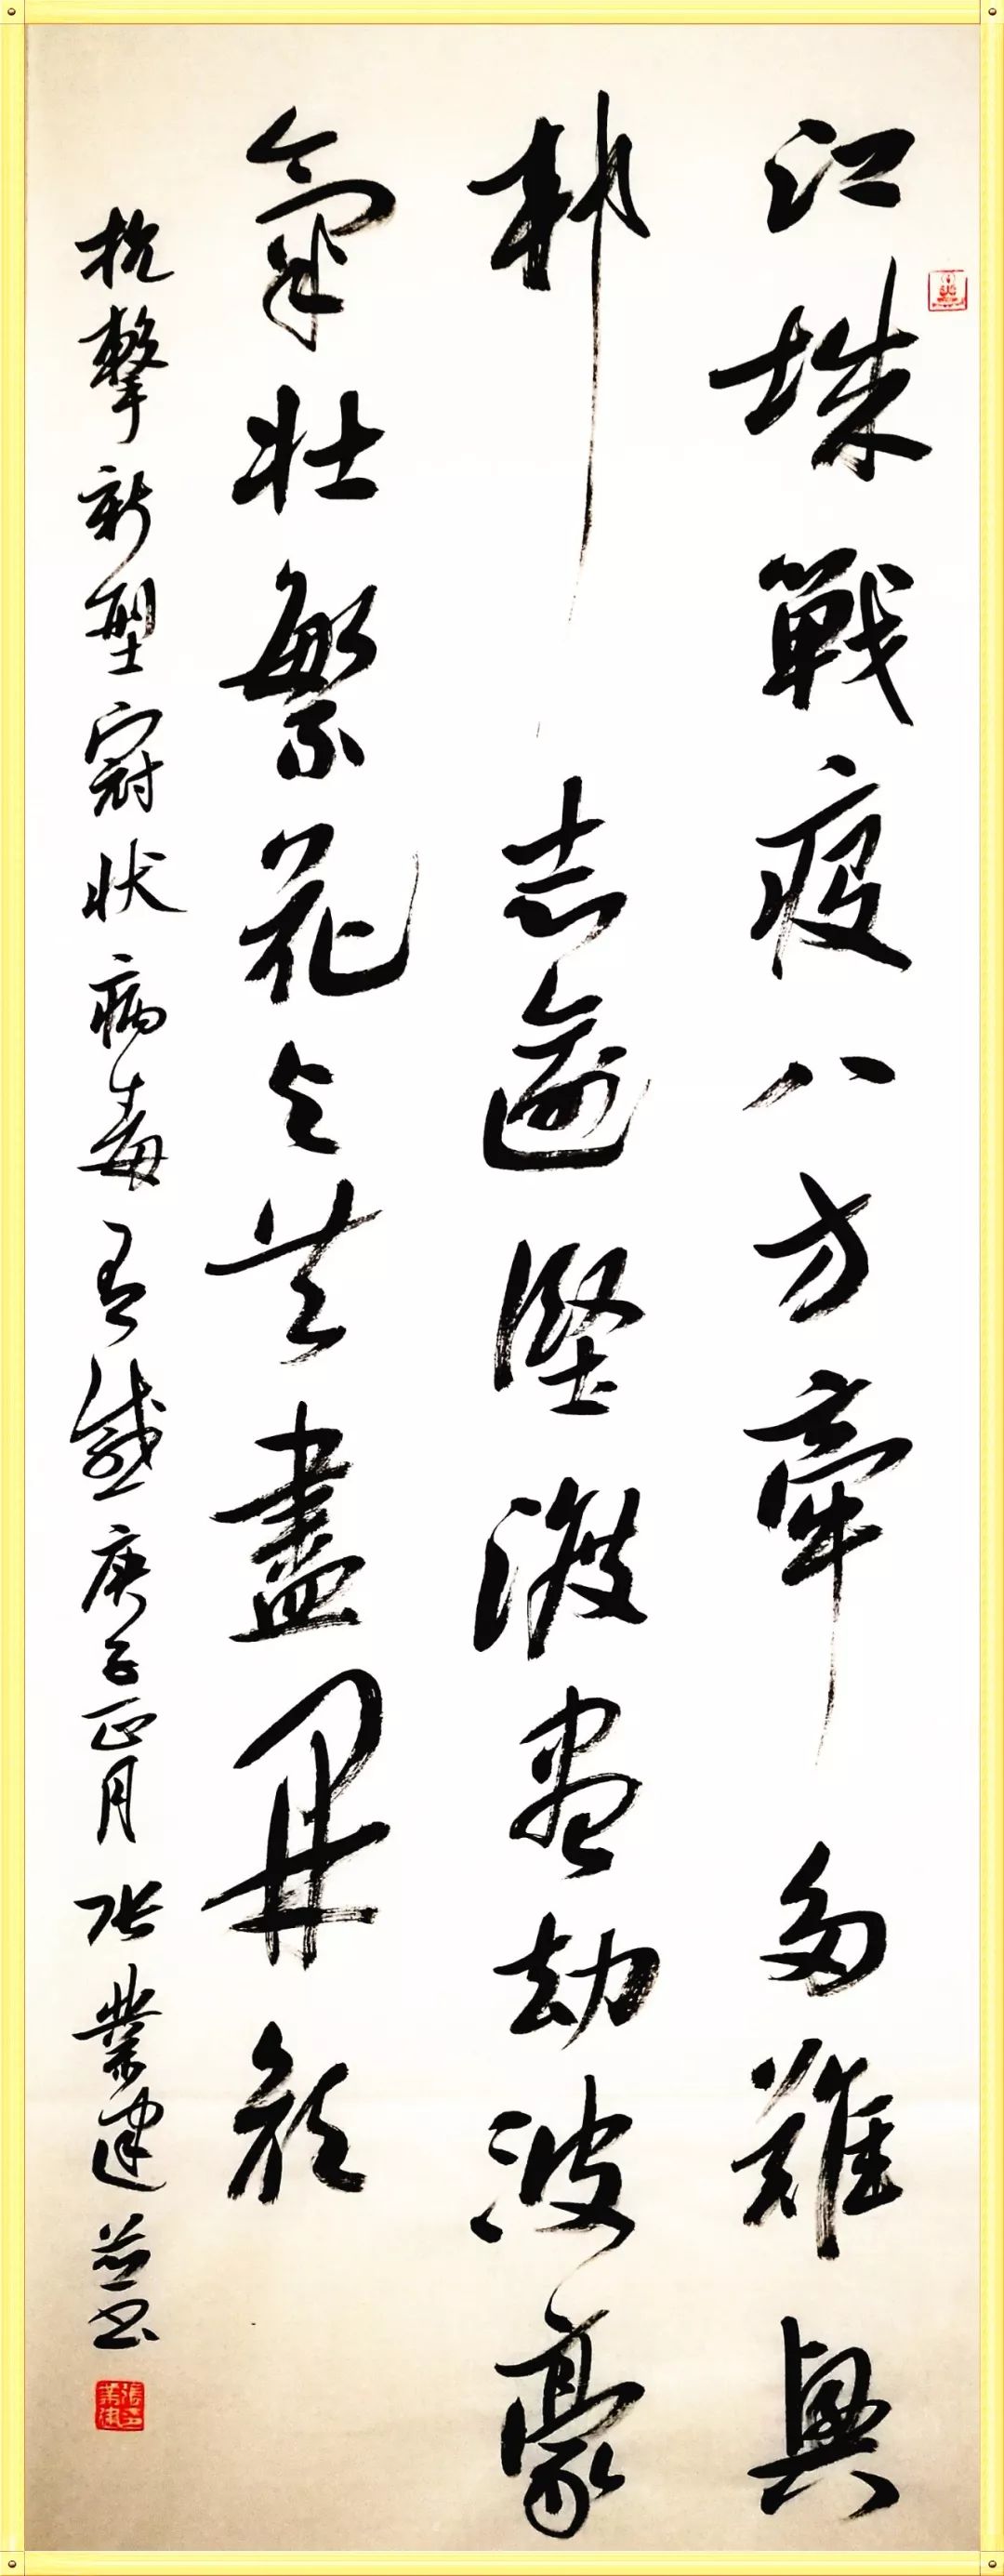 江城戰疫八方牽多難興
邦志逾堅渡盡劫波豪
氣壯繁花与共盡開顏
抗擊新型冠狀病毒有感庚子正月张業建並書